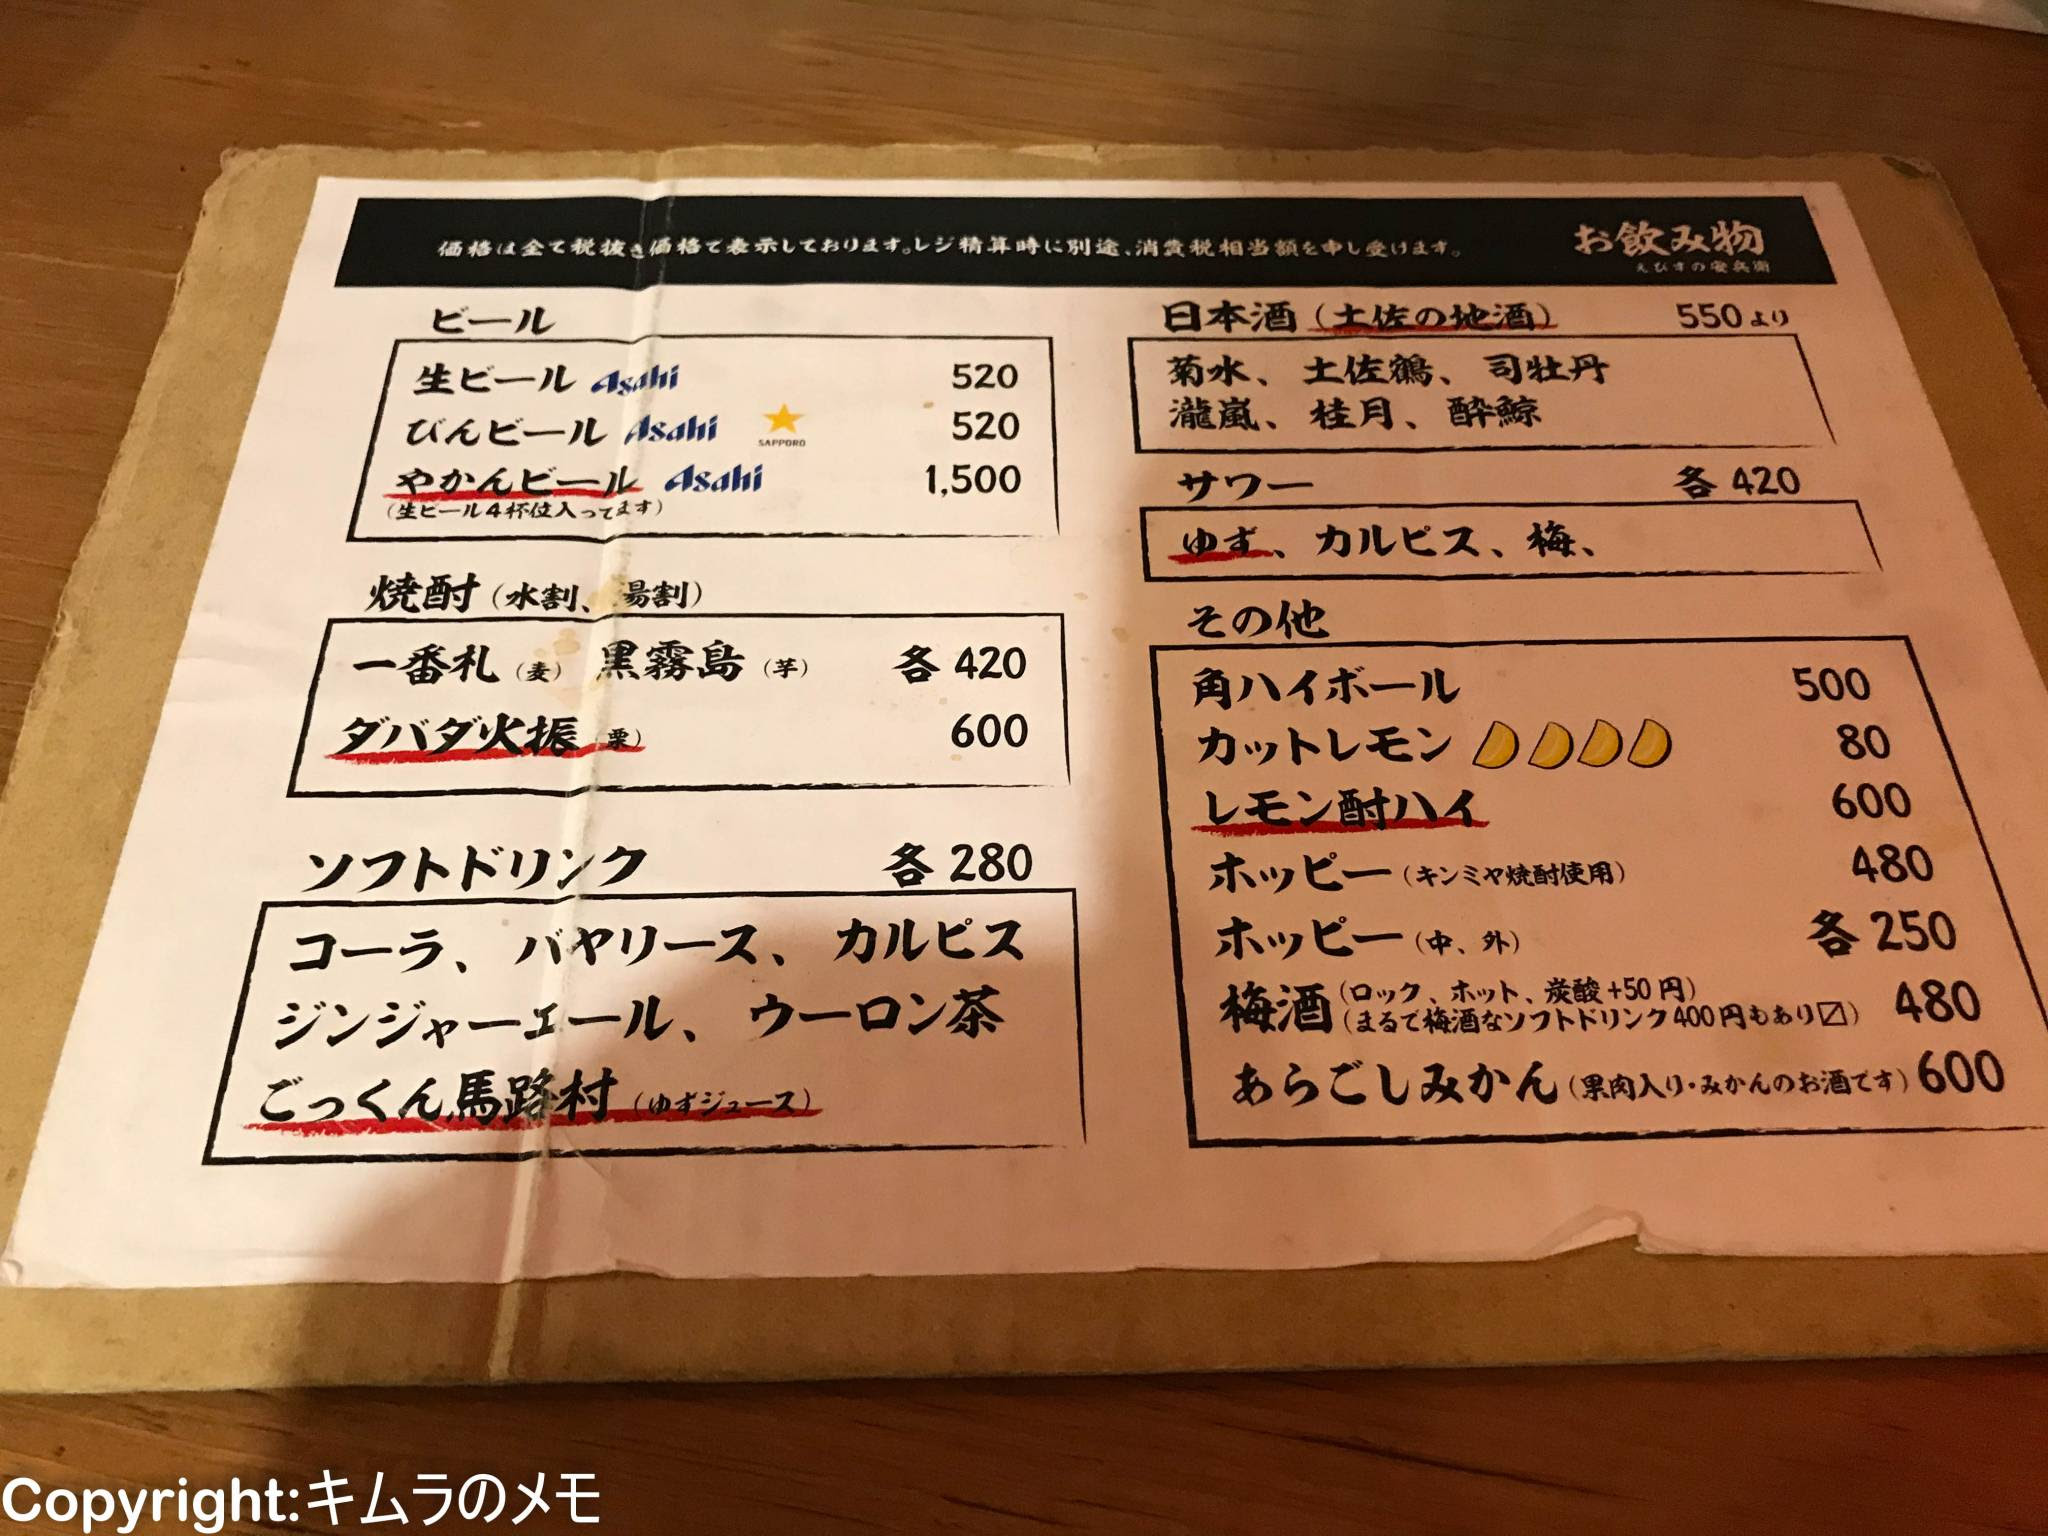 価格は全て税抜き価格で表示しております。レジ精算時に別途、消費税相当額を申し受けます。
お飲み物
えびすの安兵衛
ビール
生ビール Asahi 520
びんビール Asahi SAPPORO 520
やかんビール Asahi 1,500
(生ビール4杯位入ってます)
焼酎(水割、湯割)
一番札(麦) 黒霧島(芋) 各420
ダバダ火振(栗) 600
ソフトドリンク 各280
コーラ、バヤリース、カルピス
ジンジャーエール、ウーロン茶
ごっくん馬路村(ゆずジュース)
日本酒(土佐の地酒) 550より
菊水、土佐鶴、司牡丹
瀧嵐、桂月、酔鯨
サワー 各420
ゆず、カルピス、梅、
その他
角ハイボール 500
カットレモン 80
レモン酎ハイ 600
ホッピー(キンミヤ焼酎使用) 480
ホッピー(中、外) 各250
梅酒(ロック、ホット、炭酸+50円) 480
(まるで梅酒なソフトドリンク400円もあり〼)
あらごしみかん(果肉入り・みかんのお酒です) 600
Copyright:キムラのメモ